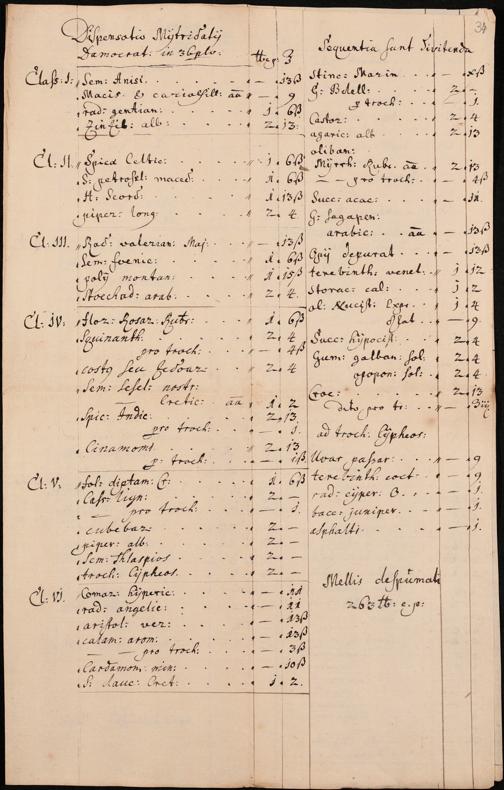 34
Dispensatio Mÿtridatÿ
Damocrat: in 36plo.
℔ c.p: ℥
Class: I: Sem: Anisi. — 13ß
Macis & cariofill: aa — 9
rad: gentian: 1. 6ß
Zinzib: alb: 2. 13.
Cl: II. Spica Celtic: 1. 6ß
S: petrosel: maced: 1. 6ß
H: Scord: 1. 13ß
piper: long: 2. 4
Cl: III. Rad: valerian: Maj: — 13ß
Sem: foenic: 1. 6ß
poly montan: 1. 15ß
Stoechad: arab: 2. 4.
Cl: IV. Flor: Rosar: Rubr: 1. 6ß
Squinanth: 2. 4
pro troch: — 4ß
costg seu Zedoar: 2. 4
Sem: Sesel: nostr:
Cretic: aa 1. 2
Spic: Indic: 2. 13.
pro troch: — 1.
Cinamomi 2. 13
p: troch: — 1ß
Cl: V. fol: diptam: Cr: 1. 6ß
Cass: lign: 2. —
pro troch: — 1.
cubebar: 2. —
piper: alb: 2. —
Sem: Thlaspios 2. —
troch: Cÿpheos 2. —
Cl: VI. Comar: hÿperic: — 11
rad: angelic: — 11
aristol: ver: — 13ß
calam: arom: — 13ß
— pro troch: — 3ß
Cardamom: min: — 10ß
S: dauc: Cret: 1. 2.
Sequentia sunt dividenda
Stinc: Marin — xß
G: Bdell: 2 —
p troch: — 1.
Castor: 2. 4
agaric: alb 2. 13
oliban:
Myrrh: Rubr: aa 2. 13
— pro troch: — 4ß
Succ: acac: — 11.
G: Sagapen:
arabic: aa — 13ß
Opÿ depurat — 13ß
terebinth: venet: 1. 12
Storac: cal: 1. 2
ol: Nucist: Expr: 1. 4
— 9.
Succ: hÿpocist: 2. 4
Gum: galban: sol: 2. 4
opopon: sol: 2. 4.
Croc: 2. 13
Dito pro tr:
ad troch: Cÿpheos:
Uvar passar: — 9
terebinth: coct: — 9
rad: cÿper: — 1.
bacc: juniper: — 1.
asphalti — 1.
Mellis despumati
263 ℔: c.p: